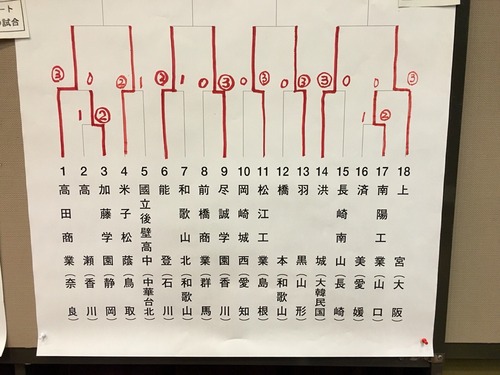 ート
の試合
③ 0 ② 1 ② 1 0 ③ 0 ③ 0 ③ ③ 0 ③
1 ② 1 ②
1 高田商業（奈良）
2 高瀬（香川）
3 加藤学園（静岡）
4 米子松蔭（鳥取）
5 國立後壁高中（中華台北）
6 能登（石川）
7 和歌山北（和歌山）
8 前橋商業（群馬）
9 尽誠学園（香川）
10 岡崎城西（愛知）
11 松江工業（島根）
12 橋本（和歌山）
13 羽黒（山形）
14 洪城（大韓民国）
15 長崎南山（長崎）
16 済美（愛媛）
17 南陽工業（山口）
18 上宮（大阪）